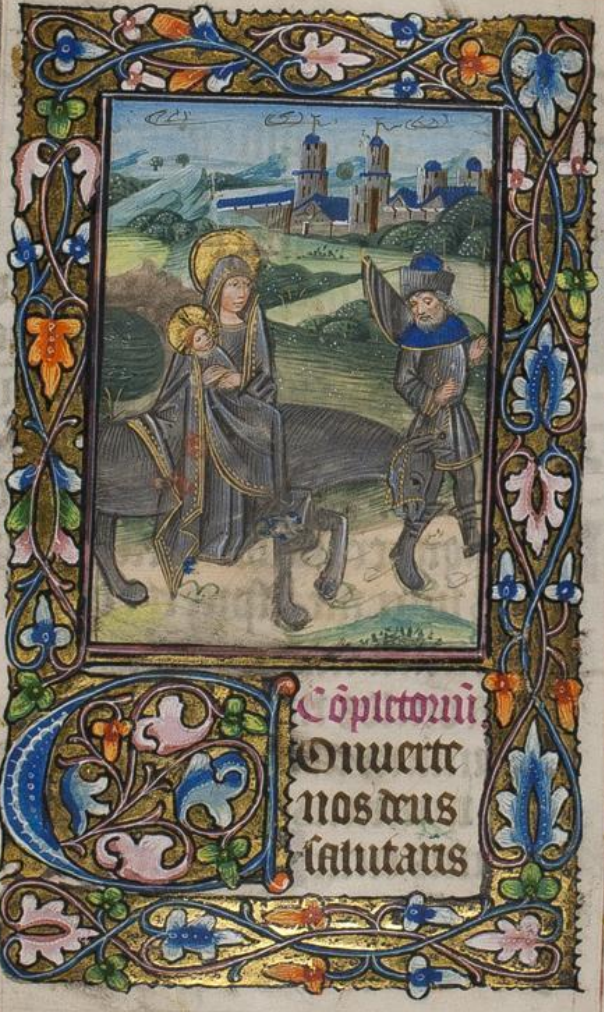 Cõpletoriũ.
Conuerte
nos deus
salutaris